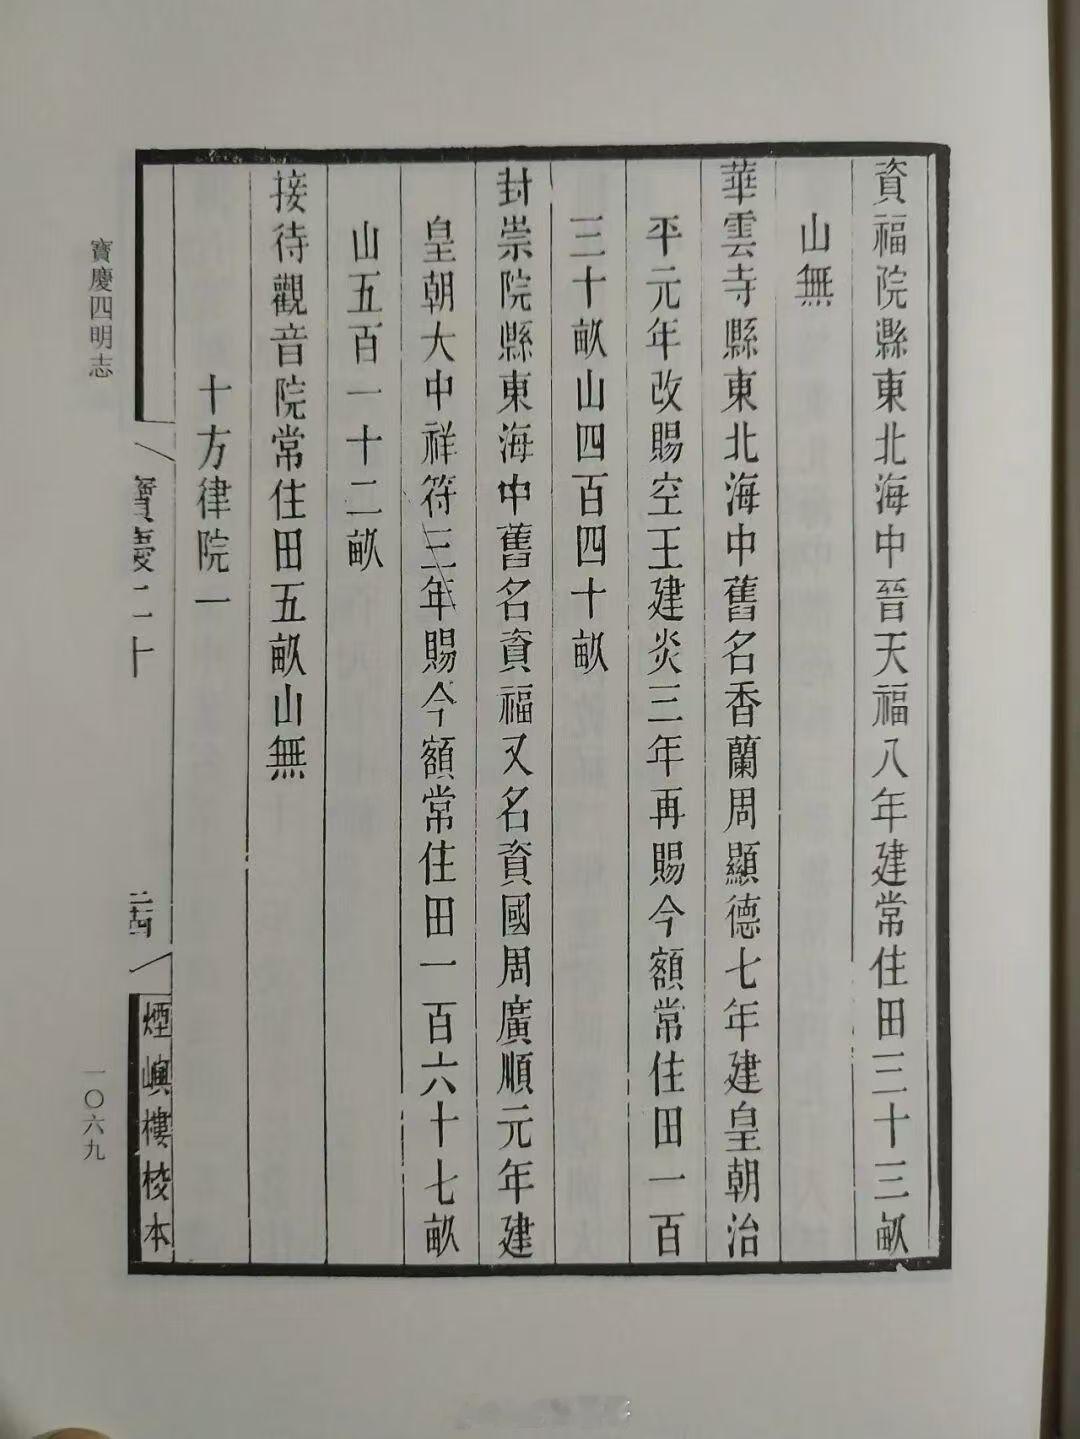 資福院縣東北海中晉天福八年建常住田三十三畝
山無
華雲寺縣東北海中舊名香蘭周顯德七年建皇朝治
平元年改賜空王建炎三年再賜今額常住田一百
三十畝山四百四十畝
封崇院縣東海中舊名資福又名資國周廣順元年建
皇朝大中祥符三年賜今額常住田一百六十七畝
山五百一十二畝
接待觀音院常住田五畝山無
十方律院一
寶慶二十
二十四
煙嶼樓校本
寶慶四明志
一〇六九